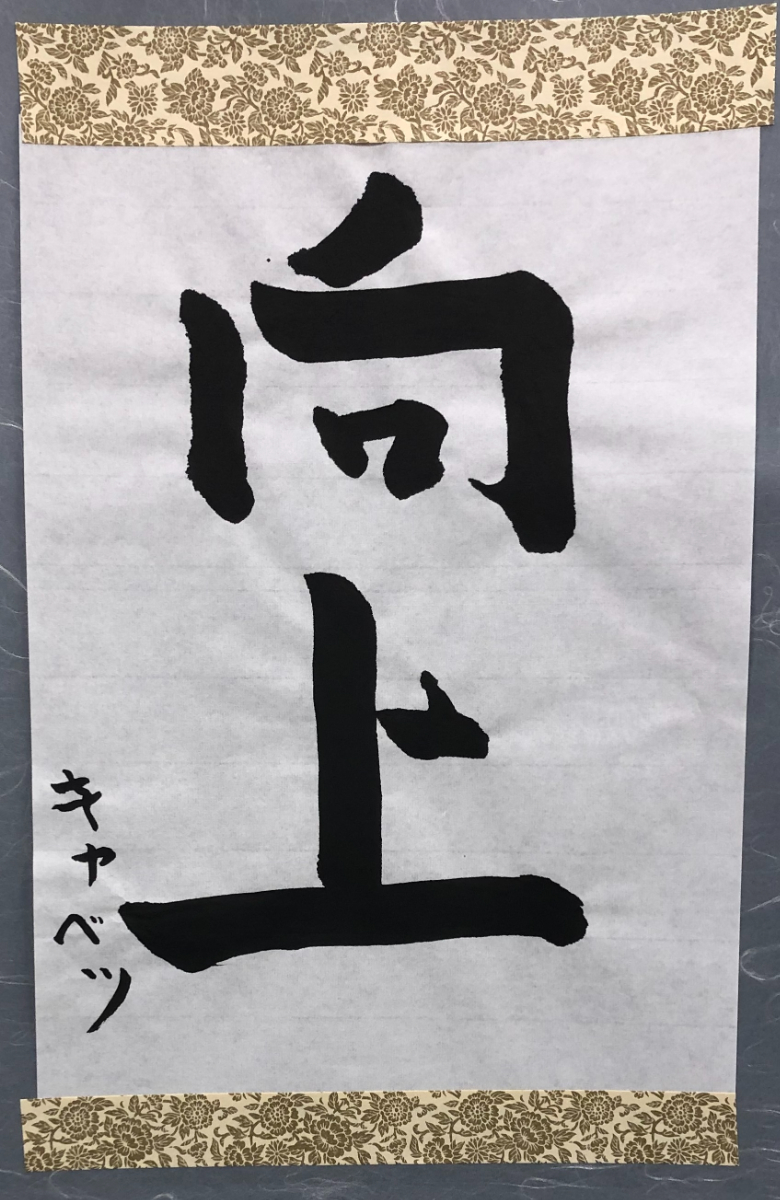 向上
キャベツ